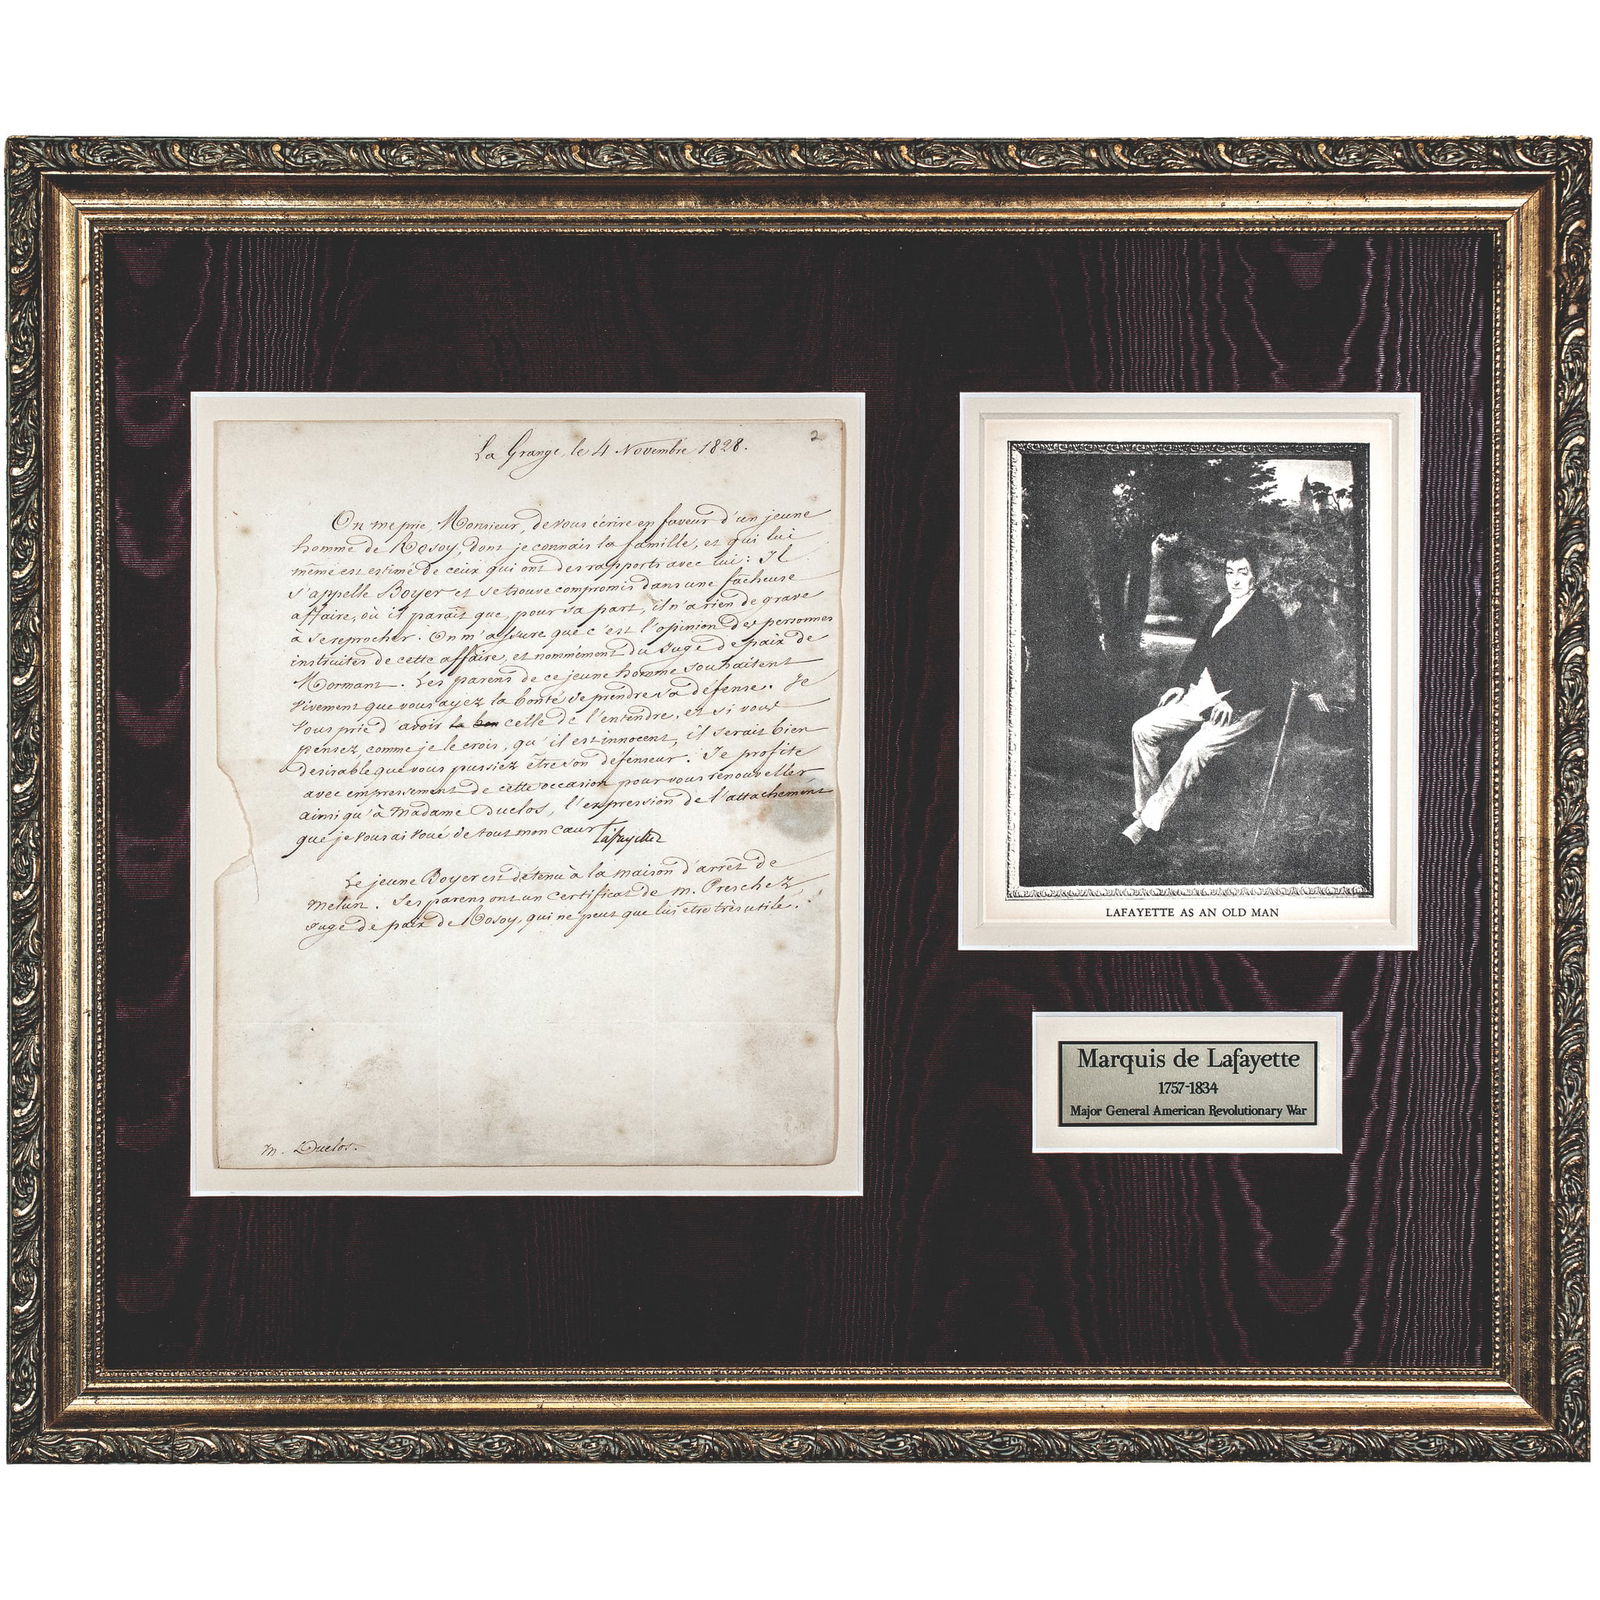 2
La Grange, le 4 Novembre 1828.
On me prie, Monsieur, de vous écrire en faveur d'un jeune
homme de Rosoy, dont je connais la famille, et qui lui
même est estimé de ceux qui ont des rapports avec lui : Il
s'appelle Boyer et se trouve compromis dans une fâcheuse
affaire, où il paraît que, pour sa part, il n'a rien de grave
à se reprocher. On m'assure que c'est l'opinion des personnes
instruites de cette affaire, et nommément du Juge de paix de
Mormant. Les parens de ce jeune homme souhaitent
vivement que vous ayez la bonté de prendre sa défense. Je
vous prie d'avoir la bon celle de l'entendre, et si vous
pensez, comme je le crois, qu'il est innocent, il serait bien
desirable que vous pussiez être son défenseur. Je profite
avec empressement de cette occasion pour vous renouveller
ainsi qu'à Madame Duclos, l'expression de l'attachement
que je vous ai voué de tout mon cœur
Lafayette
Le jeune Boyer est détenu à la maison d'arrêt de
Melun. Ses parens ont un certificat de M. Preschez,
juge de paix de Rosoy, qui ne peut que lui être très utile.
M. Duclos.
LAFAYETTE AS AN OLD MAN
Marquis de Lafayette
1757-1834
Major General American Revolutionary War